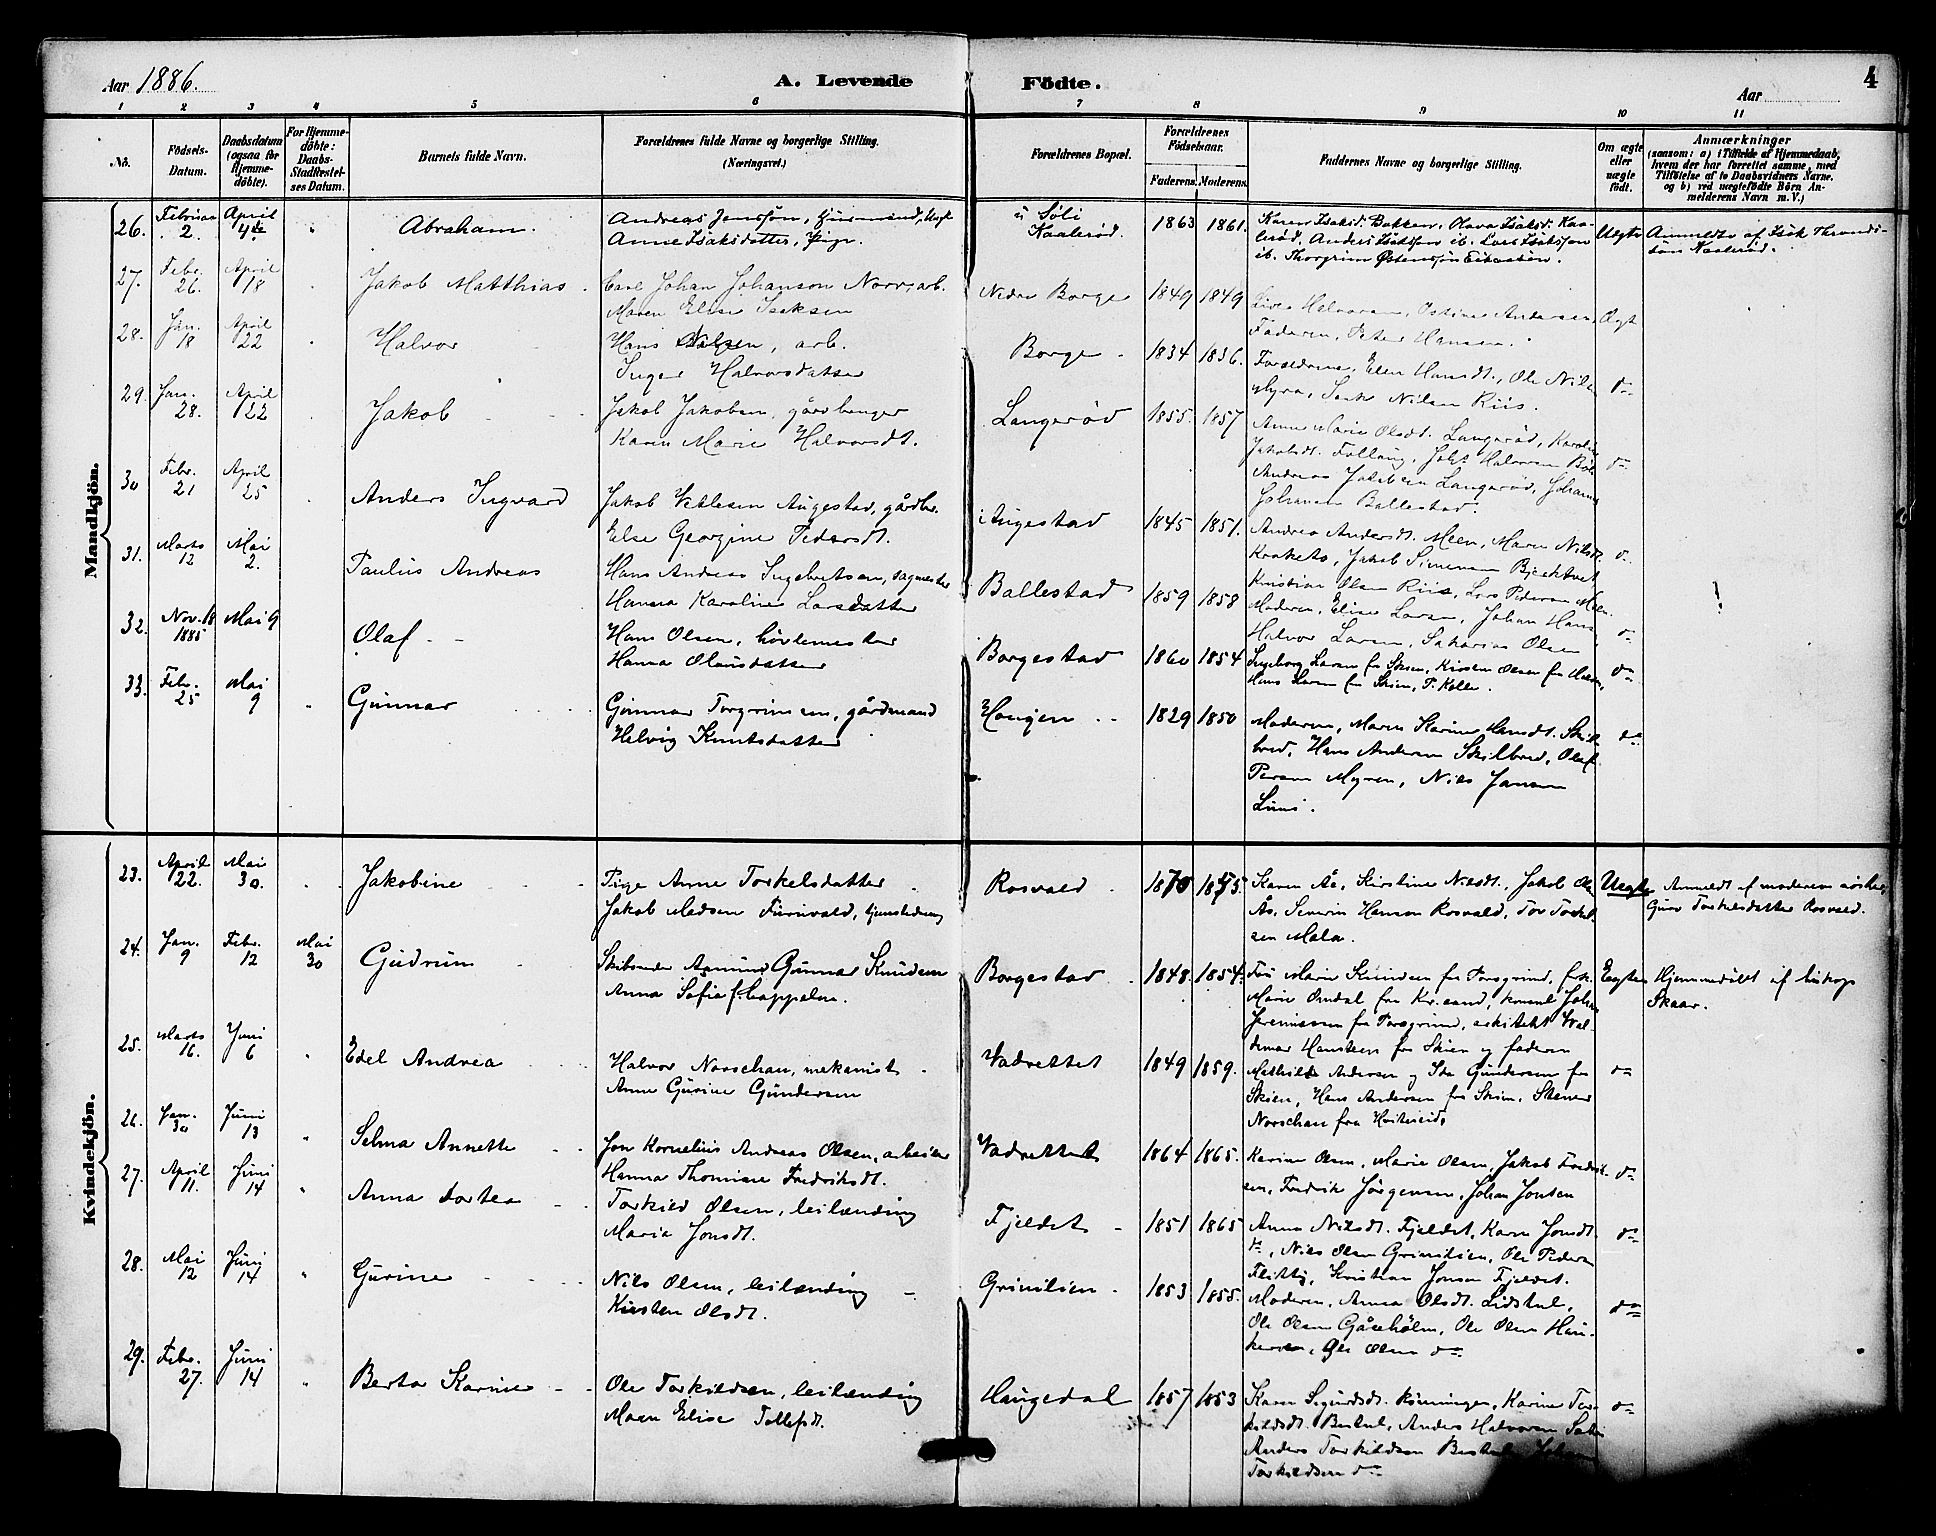 Aar 1886.
A. Levende Födte.
Aar
4
1 2 3 4 5 6 7 8 9 10 11
No.
Födsels-Datum.
Daabsdatum (ogsaa for Hjemme-döbte).
For Hjemme-döbte: Daabs-Stadfæstel-ses Datum.
Barnets fulde Navn.
Forældrenes fulde Navne og borgerlige Stilling. (Næringsvei.)
Forældrenes Bopæl.
Forældrenes Födselsaar.
Faderens. Moderens.
Faddernes Navne og borgerlige Stilling.
Om ægte eller uægte födt.
Anmærkninger
(saasom: a) i Tilfælde af Hjemmedaab,
hvem der har forrettet samme, med
Tilföielse af to Daabsvidners Navne.
og b) ved uægtefödte Börn An-
melderens Navn m. V.)
Mandkjön.
26. Februar 2. April 4de " Abraham. Andreas Jensson, Husmand, Ugt
Anne Isaksdatter, Pige
Söli Kaaleröd 1863 1861.
Karen Isaksd. Bakken, Olava Isaksd. Kaa-
leröd, Anders Isaksson ib. Lars Isaksson
ib. Thorgrim Östensson
Uægte Anmeldt af Isak Thronds-
sön Kaaleröd.
27. Febr. 26. April 18 Jakob Matthias. Carl Johan Johanson Norr, arb.
Maren Elise Isaksen
Nedre Borge 1849 1849
Halvorsen, Ostine Andersen,
Faderen, Peter Hansen.
Ægt
28. Jan. 18 April 22 Halvor Hans Nilsen, arb.
Inger Halvorsdatter
Borge 1834 1836.
Forældrene, Elen Hansdt., Ole Nils.
Myra, Isak Nilsen Riis.
do
29. Jan. 28. April 22 Jakob Jakob Jakobsen, gårdbruger
Karen Marie Halvorsdt.
Langeröd 1855. 1857
Anne Marie Olsdt. Langeröd, Karoline
Jakobsdt. Follaug, Johs Halvorsen
Andreas Jakobsen Langeröd, Johannes
Johansen Ballestad.
do
30 Febr. 21 April 25 Anders Ingvard Jakob Vetlesen Augestad, gårdbr.
Else Georgine Pedersdt.
Augestad 1845 1851.
Andrea Andersdt. Meen, Maren Nilsdt.
Jakob Simensen
Kristian Olsen Riis, Lars Pedersen Meen.
do
31. Marts 12 Mai 2. Paulus Andreas Hans Andreas Ingebretsen, sagmester
Hanna Karoline Larsdatter
Ballestad 1859 1858
Moderen, Elise Larsen, Johan Hans
Halvor Larsen, Sakarias Olsen
do
32. Nov. 18 1885 Mai 9 Olaf Hans Olsen, hövlemester
Hanna Olausdatter
Borgestad 1860 1854
Ingeborg Larsen fr Skien, Kirsten Olsen fr
Hans Larsen fr Skien, P. Kolle.
do
33. Febr. 25 Mai 9 " Gunnar Gunnar Torgrimsen, gårdmand
Helvig Knutsdatter
Haugen 1829 1850
Moderen, Maren Karine Hansdt. Skil-
bred, Hans Andersen Skilbred, Olaf
Persen Myren, Nils Jansen
do
Kvindekjön.
23. April 22. Mai 30. Jakobine Pige Anne Torkelsdatter
Jakob Madsen Furuvald, tjenestedreng
Rosvald 1875.
Karen Ås, Kirstine Nilsdt., Jakob Ols
Ås, Severin Hansen Rosvald, Tov Torkel-
sen Mæla.
Uægte Anmeldt af moderens söster
Guro Torkelsdatter Rosvald.
24. Jan. 9 Febr. 12 Mai 30 Gudrun Skibsreder Aamund Gunnar Knudsen
Anna Sofie f. Cappelen.
Borgestad 1848. 1854.
Fru Marie Knudsen fra Porsgrund, frk.
Marie Omdal fra Kr.sand, konsul Johs
Jeremiassen fra Porsgrund, arkitekt Wal-
demar Hansteen fra Skien og faderen
Eægte Hjemmedöbt af biskop
Skaar.
25. Marts 16. Juni 6 " Edel Andrea Halvor Norschau, mekanist
Anne Gurine Gundersen
Vadrettet 1849 1859.
Mathilde Andersen og Ida Gundersen fr
Skien, Hans Andersen fra Skien. Steener
Norschau fra Hviteseid.
do
26. Jan. 30 Juni 13 " Selma Annette Jon Kornelius Andreas Olsen, arbeider
Hanna Thomine Fredriksdt.
Vadrettet 1864 1865.
Karine Olsen, Marie Olsen, Jakob Fredrik-
sen, Fredrik Jörgensen, Johan Jonsen
do
27. April 11. Juni 14 " Anna Dortea Torkild Olsen, leilænding
Maria Jonsdt.
Fjeldet 1851 1865
Anne Nilsdt. Fjeldet, Karen Jonsdt.
do, Nils Olsen Grinilien, Ole Pedersen
Flittig, Kristian Jonsen Fjeldet.
do
28. Mai 12 Juni 14 " Gurine Nils Olsen, leilænding
Kirsten Olsdt.
Grinilien 1853 1855.
Moderen, Anna Olsdt. Lidstul,
Ole Olsen Gåseholm, Ole Olsen Hau-
keren, Ole Olsen do
do
29. Febr. 27. Juni 14 " Berta Karine Ole Torkildsen, leilænding
Maren Elise Tollefsdt.
Haugedal 1857 1853
Karen Sigurdsdt. Rönningen, Karine Tor-
kildsdt. Bestul, Anders Halvorsen
Anders Torkildsen Bestul, Johan
Torkildsen do
do